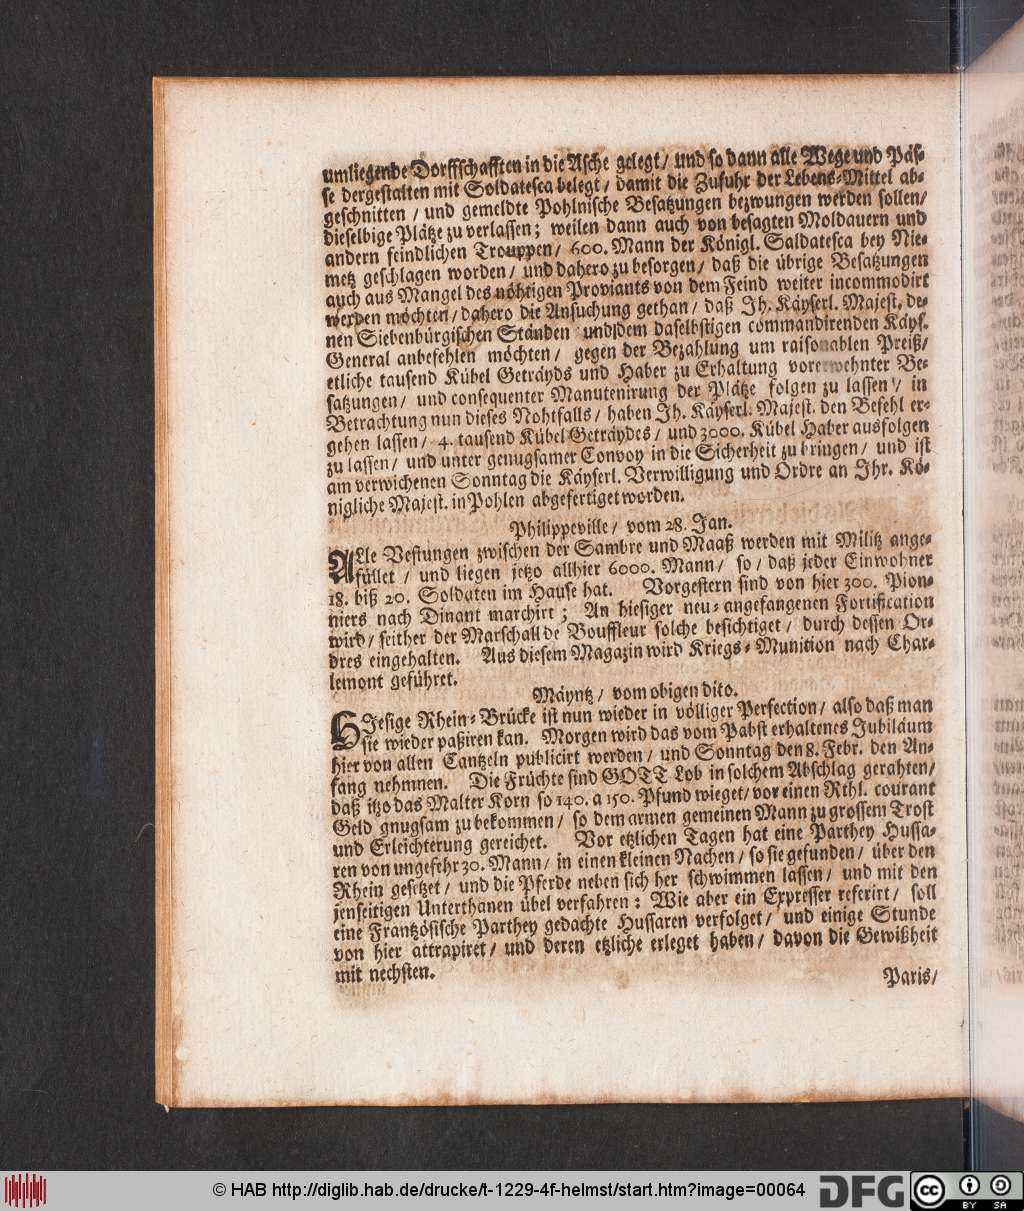 umliegende Dorffschafften in die Asche gelegt/ und so dann alle Wege und Päs-
se dergestalten mit Soldatesca belegt/ damit die Zufuhr der Lebens-Mittel ab-
geschnitten/ und gemeldte Pohlnische Besatzungen bezwungen werden sollen/
dieselbige Plätze zu verlassen; weilen dann auch von besagten Moldauern und
andern feindlichen Trouppen/ 600. Mann der Königl. Saldatesca bey Nie-
metz geschlagen worden/ und dahero zu besorgen/ daß die übrige Besatzungen
auch aus Mangel des nöhtigen Proviants von dem Feind weiter incommodirt
werden möchten/ dahero die Ansuchung gethan/ daß Ih. Käyserl. Majest. de-
nen Siebenbürgischen Ständen und dem daselbstigen commandirenden Käys.
General anbefehlen möchten/ gegen der Bezahlung um raisonablen Preiß/
etliche tausend Kübel Geträyds und Haber zu Erhaltung vorerwehnter Be-
satzungen/ und consequenter Manutenirung der Plätze folgen zu lassen/ in
Betrachtung nun dieses Nohtfalls/ haben Ih. Käyserl. Majest. den Befehl er-
gehen lassen/ 4. tausend Kübel Geträydes/ und 3000. Kübel Haber ausfolgen
zu lassen/ und unter genugsamer Convoy in die Sicherheit zu bringen/ und ist
am verwichenen Sonntag die Käyserl. Verwilligung und Ordre an Ihr. Kö-
nigliche Majest. in Pohlen abgefertiget worden.
Philippeville/ vom 28. Jan.
ALle Vestungen zwischen der Sambre und Maaß werden mit Militz ange-
füllet/ und liegen jetzo allhier 6000. Mann/ so/ daß jeder Einwohner
18. biß 20. Soldaten im Hause hat. Vorgestern sind von hier 300. Pion-
niers nach Dinant marchirt; An hiesiger neu-angefangenen Fortification
wird/ seither der Marschall de Bouffleur solche besichtiget/ durch dessen Or-
dres eingehalten. Aus diesem Magazin wird Kriegs-Munition nach Char-
lemont geführet.
Mäyntz/ vom obigen dito.
HIesige Rhein-Brücke ist nun wieder in völliger Perfection/ also daß man
sie wieder paßiren kan. Morgen wird das vom Pabst erhaltenes Jubiläum
hier von allen Cantzeln publicirt werden/ und Sonntag den 8. Febr. den An-
fang nehmnen. Die Früchte sind GOTT Lob in solchem Abschlag gerahten/
daß itzo das Malter Korn so 140. a 150. Pfund wieget/ vor einen Rthl. courant
Geld gnugsam zu bekommen/ so dem armen gemeinen Mann zu grossem Trost
und Erleichterung gereichet. Vor etzlichen Tagen hat eine Parthey Hussa-
ren von ungefehr 30. Mann/ in einen kleinen Nachen/ so sie gefunden/ über den
Rhein gesetzet/ und die Pferde neben sich her schwimmen lassen/ und mit den
jenseitigen Unterthanen übel verfahren: Wie aber ein Expresser referirt/ soll
eine Frantzösische Parthey gedachte Hussaren verfolget/ und einige Stunde
von hier attrapiret/ und deren etzliche erleget haben/ davon die Gewißheit
mit nechsten.
Paris/
© HAB http://diglib.hab.de/drucke/t-1229-4f-helmst/start.htm?image=00064
DFG
cc BY SA